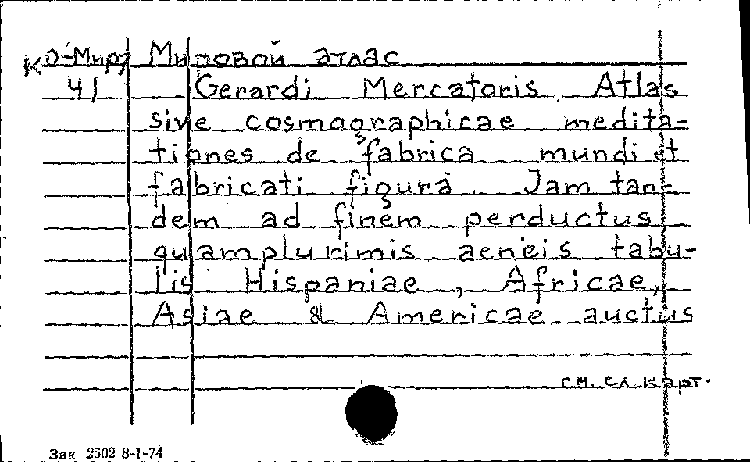 Ко-Мир/ Мировой атлас
41 Gerardi Mercatoris Atlas
sive cosmographicae medita-
tiones de fabrica mundi et
fabricati figura Jam tan-
dem ad finem perductus
quamplurimis aeneis tabu-
lis Hispaniae, Africae,
Asiae & Americae auctus
см. сл. карт.
Зак 2502 8-1-74